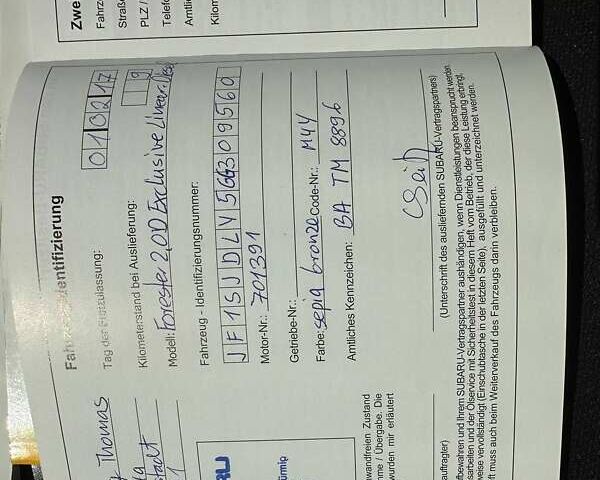 Zwe
Fahrz
Straße
PLZ /
Telefo
Amtlic
Kilom
Fah identifizierung
Tag der Erstzulassung: 010217
Kilometerstand bei Auslieferung: 9
Modell: Forester 2,0D Exclusive Linear
Fahrzeug - Identifizierungsnummer:
JF1SJDLY5GG309569
Motor-Nr.: 701391
Getriebe-Nr.:
Farbe: sepia bronze Code-Nr.: M4Y
Amtliches Kennzeichen: BA TM 8896
(Unterschrift des ausliefernden SUBARU-Vertragspartners)
Thomas
stadt
1
RU
ürmip
wandfreien Zustand
me / Übergabe. Die
wurden mir erläutert
auftragter)
fbewahren und Ihrem SUBARU-Vertragspartner aushändigen, wenn Dienstleistungen beansprucht werden.
sarbeiten und der Ölservice mit Sicherheitstest in diesem Heft vom Betrieb, der diese Leistung erbringt,
weise vervollständigt (Einschubtasche in der letzten Seite), ausgefüllt und unterzeichnet werden.
ft muss auch beim Weiterverkauf des Fahrzeugs darin verbleiben.